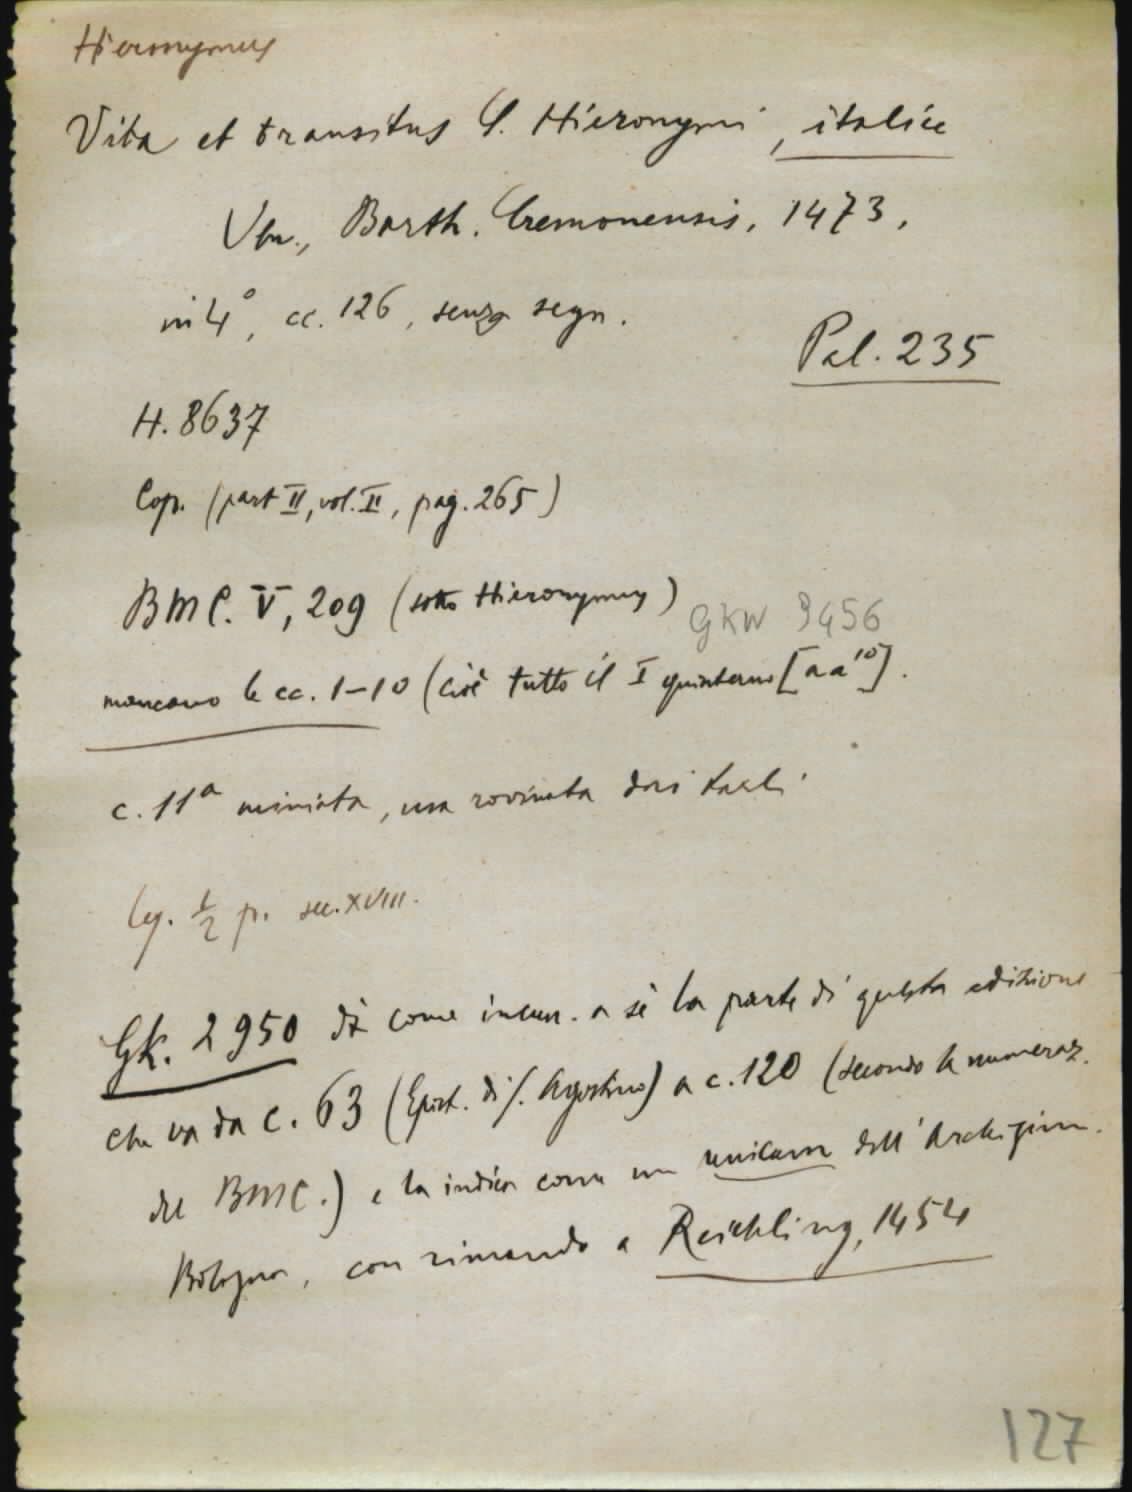 Hieronymus
Vita et transitus S. Hieronymi, italice
Ven., Barth. Cremonensis, 1473,
in 4°, cc. 126, senza segn.
Pal. 235
H. 8637
Cop. (part II, vol. II, pag. 265)
BMC. V, 209 (sotto Hieronymus)
GKW 9456
mancano le cc. 1-10 (cioè tutto il I quinterno [aa¹⁰].
c. 11ª miniata, ma rovinata dai tarli.
Leg. ½ p. sec. XVIII.
GK. 2950 dà come incun. a sé la parte di questa edizione
che va da c. 63 (Epist. di S. Agostino) a c. 120 (secondo la numeraz.
del BMC.) e la indica come un unicum dell'Archiginn.
Bologna, con rimando a Reichling, 1454
127